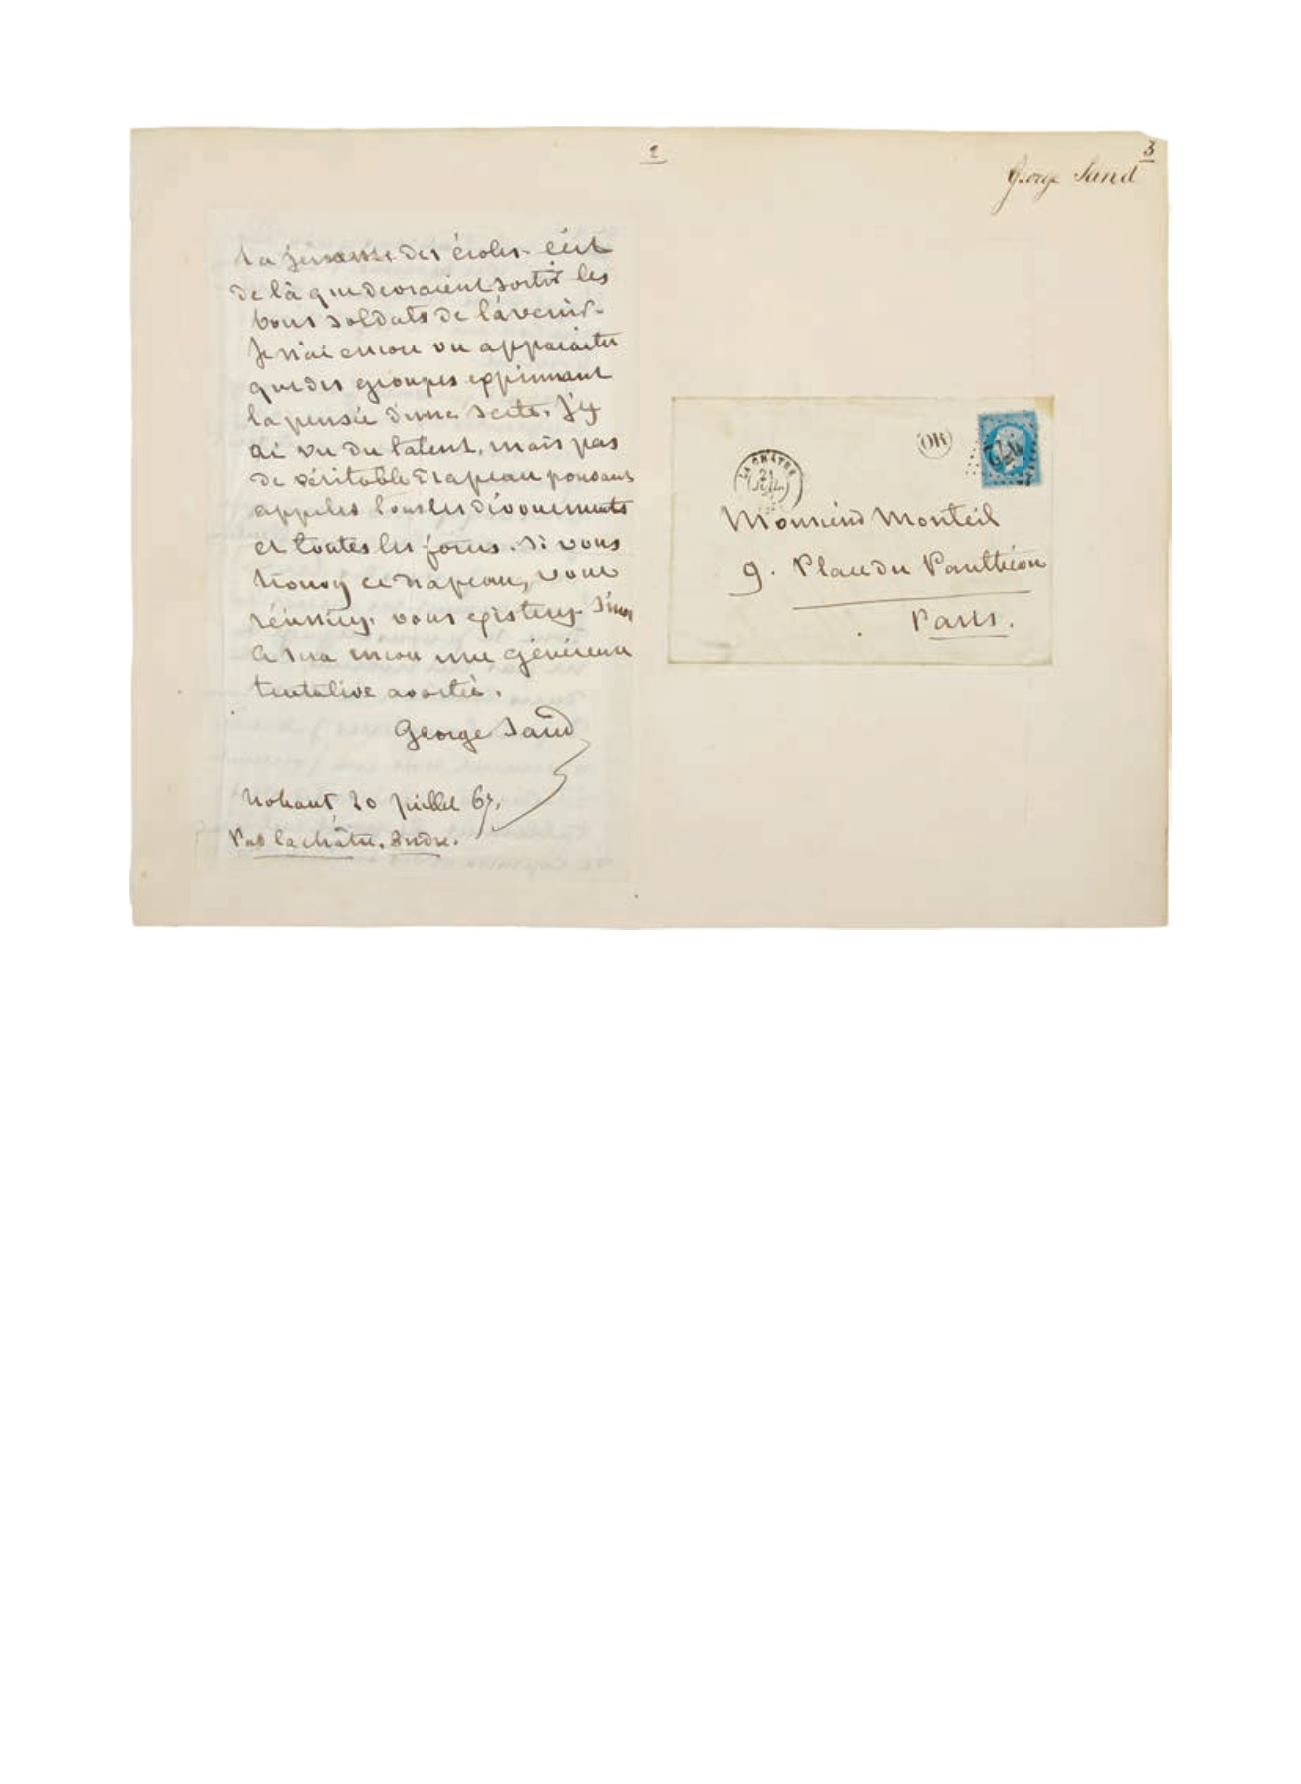 2
3
George Sand
la jeunesse des écoles. c'est
de là que devraient sortir les
bons soldats de l'avenir.
Je n'ai encore vu apparaître
que des groupes exprimant
la pensée d'une secte. J'y
ai vu du talent, mais pas
de véritable drapeau pouvant
appeler tous les dévouements
et toutes les forces. Si vous
trouvez ce drapeau, vous
réussirez, vous existerez. Sinon
ce sera encore une généreuse
tentative avortée.
George Sand
Nohant 20 juillet 67.
Par la châtre. Indre.
OR
LA CHÂTRE
21
JUIL.
Monsieur Monteil
9. Place du Panthéon
Paris.